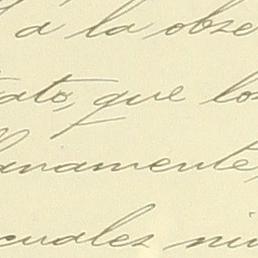 á la obse
ato, que los
anamente,
cuales ni